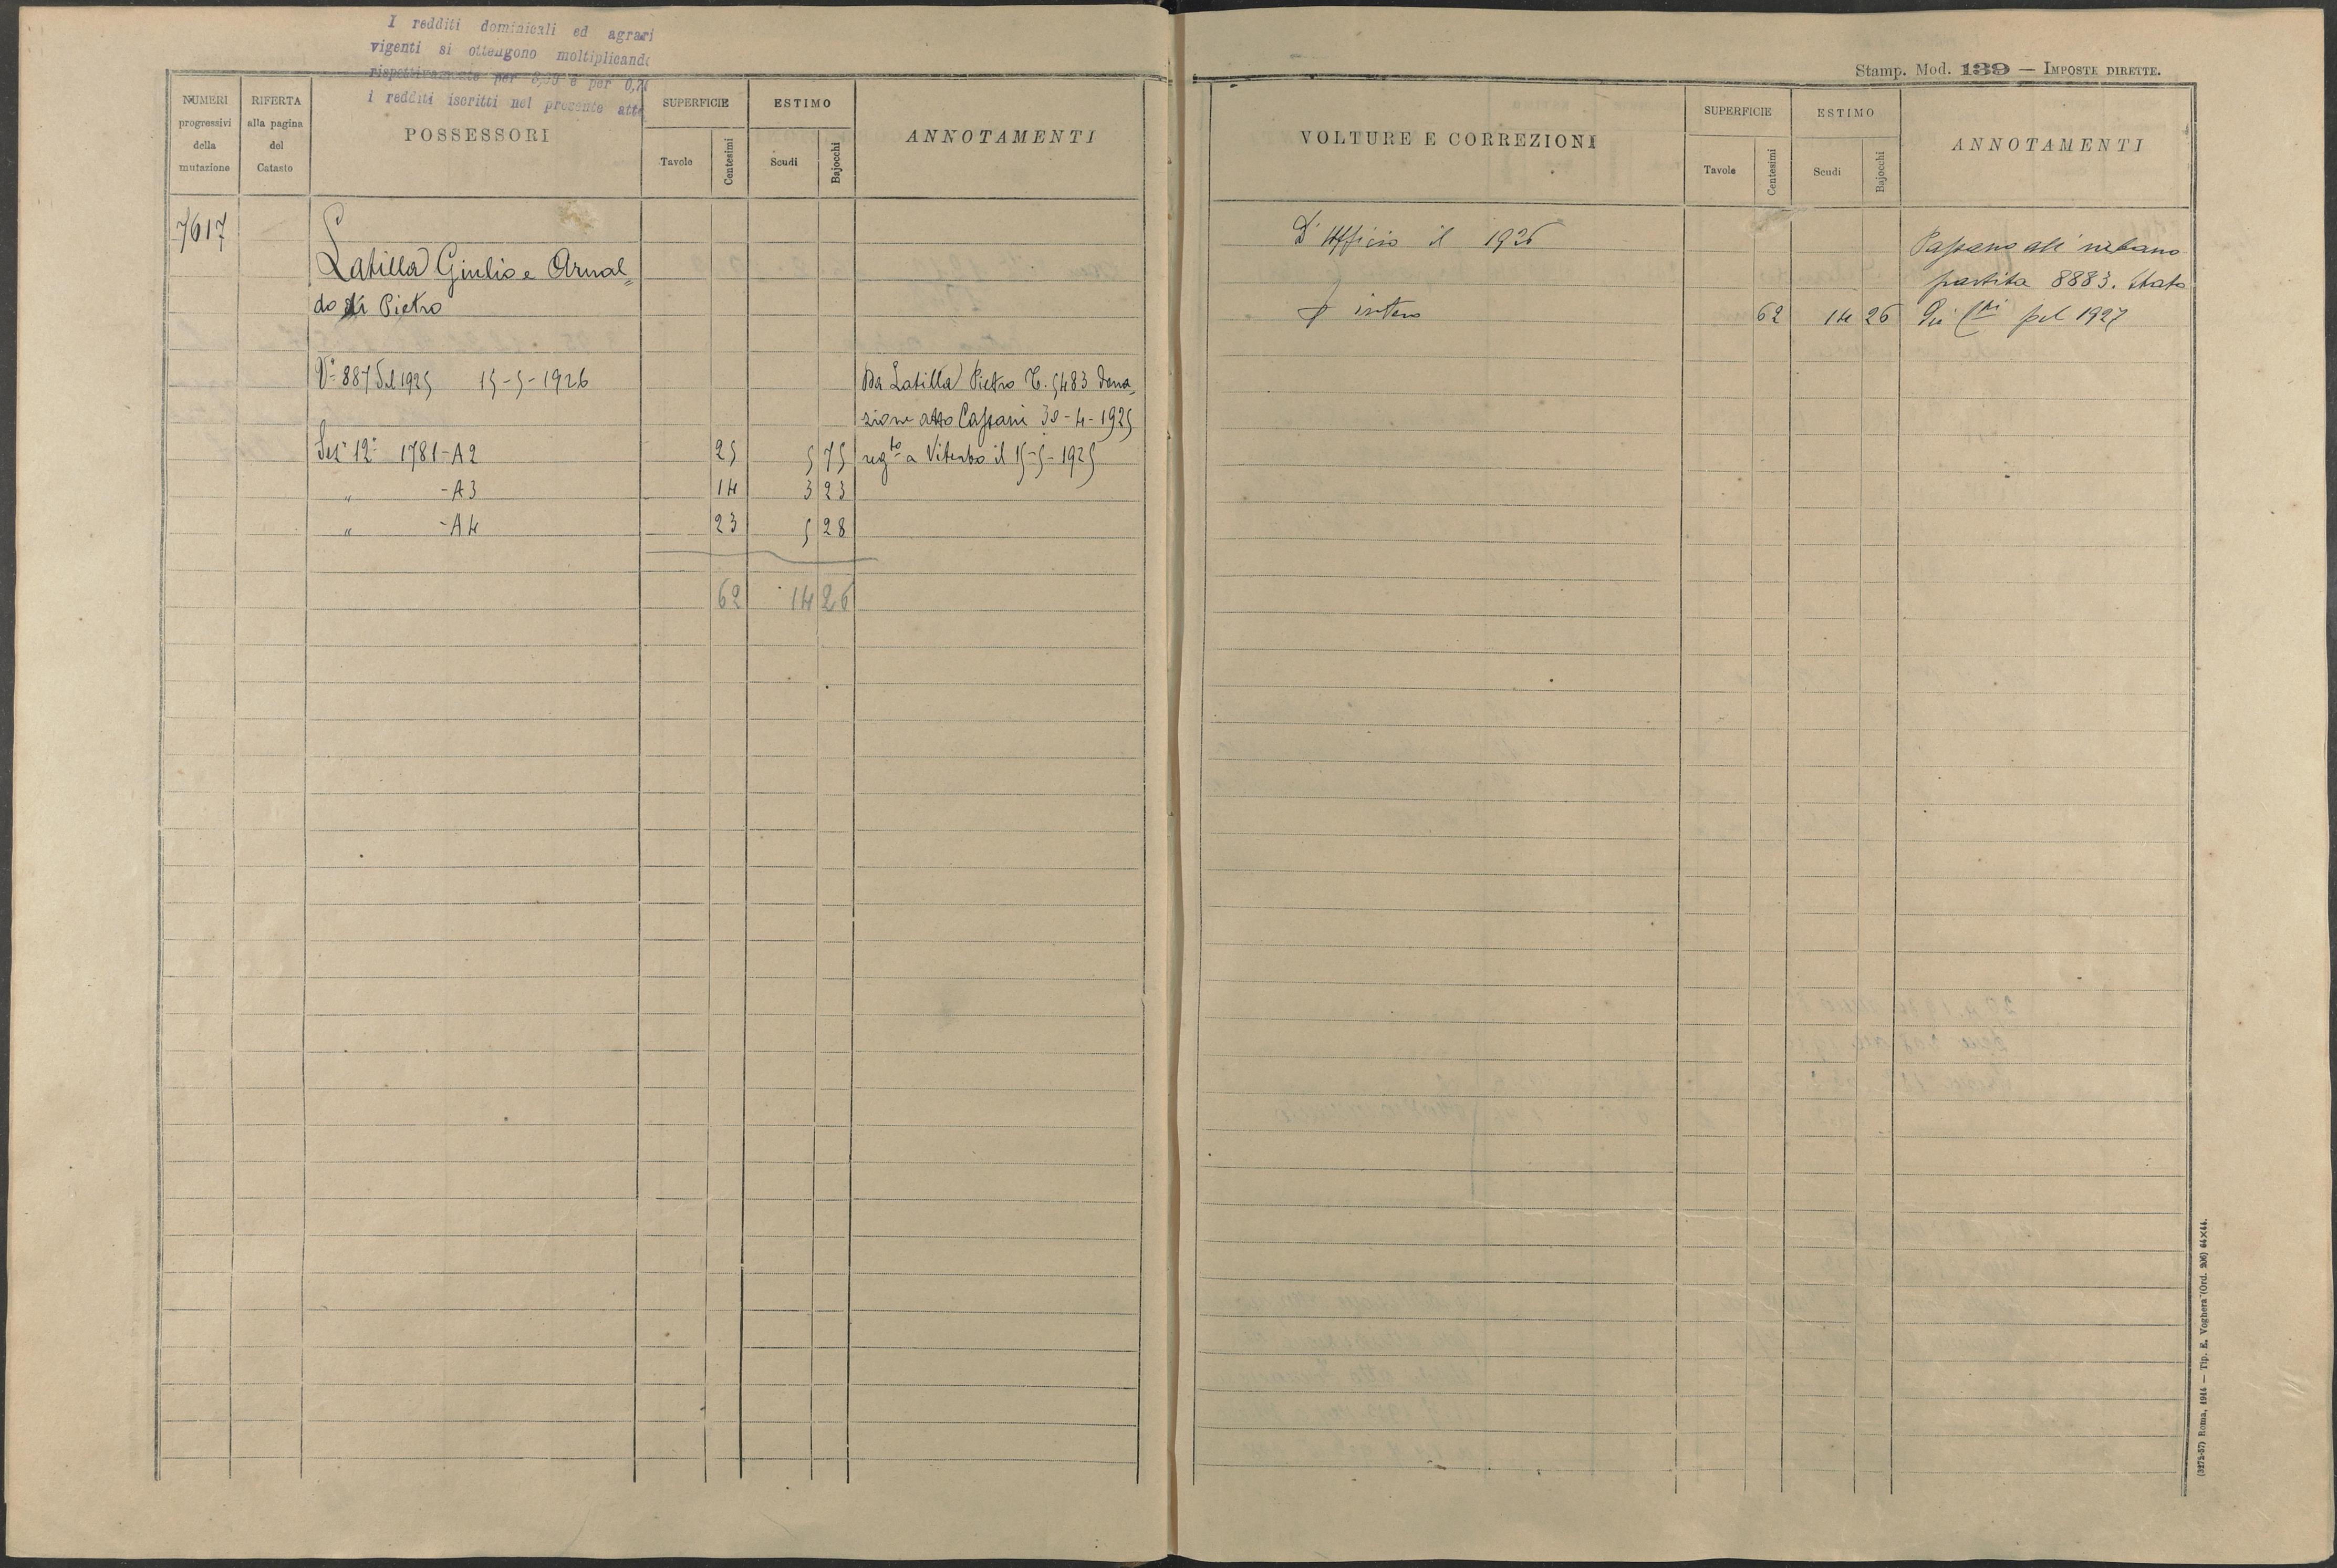 I redditi dominicali ed agrari
vigenti si ottengono moltiplicando
rispettivamente per 3,50 e per 0,
i redditi iscritti nel presente atto
Stamp. Mod. 139 — IMPOSTE DIRETTE.
NUMERI progressivi della mutazione
RIFERTA alla pagina del Catasto
POSSESSORI
SUPERFICIE
Tavole
Centesimi
ESTIMO
Scudi
Bajocchi
ANNOTAMENTI
7617
Latilla Giulio e Arnal=
do di Pietro
Va 887 del 1925 15-5-1926
Da Latilla Pietro P. 5483 Dona=
zione atto Cassani 30-4-1925
Sez 12a 1781-A2 25 5 75 regto a Viterbo il 15-5-1925
" -A3 14 3 23
" -A4 23 5 28
62 14 26
VOLTURE E CORREZIONI
SUPERFICIE
Tavole
Centesimi
ESTIMO
Scudi
Bajocchi
ANNOTAMENTI
D'Ufficio il 1926
Passano all'urbano
partita 8883. Stato
intero 62 14 26 pel 1927
(3275-57) Roma, 1914 — Tip. E. Voghera (Ord. 206) 64×44.